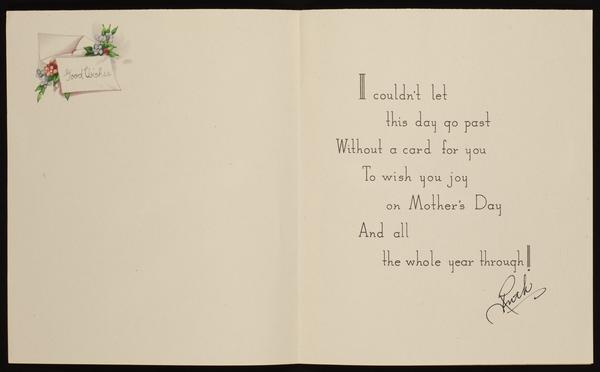 Good Wishes
I couldn't let
this day go past
Without a card for you
To wish you joy
on Mother's Day
And all
the whole year through!